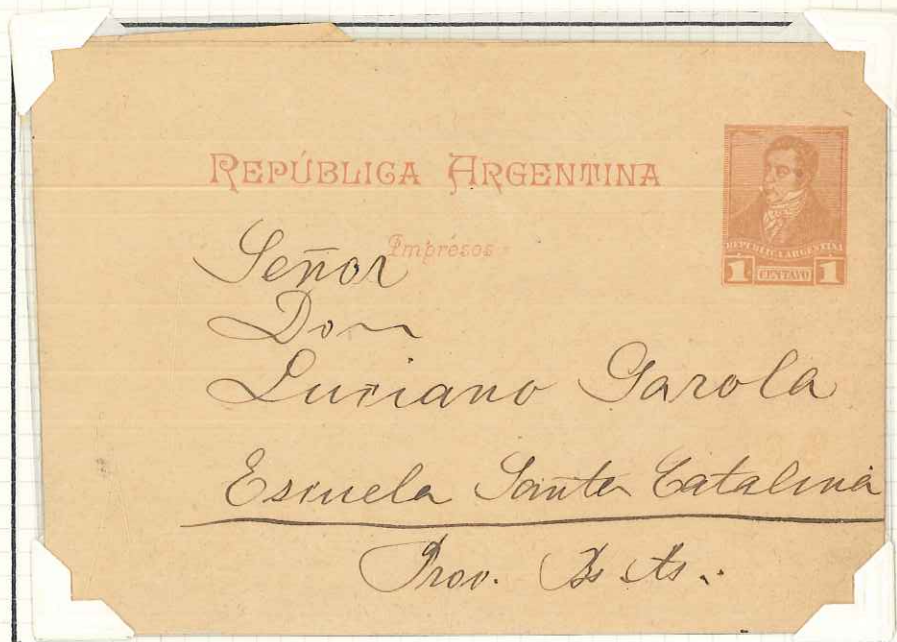 REPÚBLICA ARGENTINA
Impresos
REPUBLICA ARGENTINA
1 CENTAVO 1
Señor
Don
Luciano Garola
Escuela Santa Catalina
Prov. Bs As.